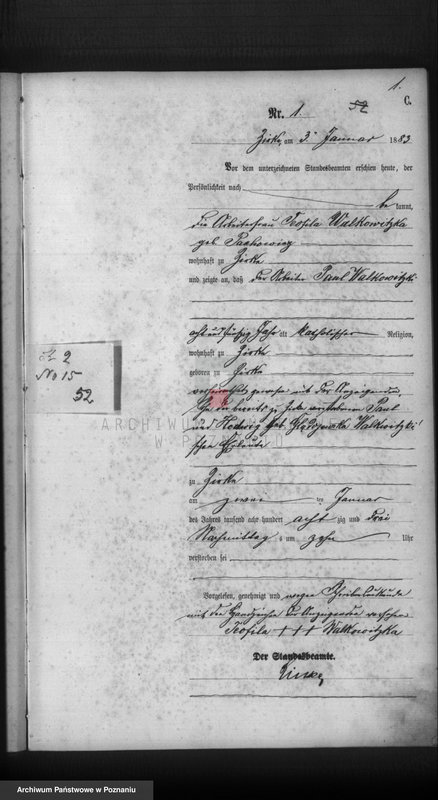 1.
52
C.
Nr. 1.
Zirke am 3. Januar 1883
Vor dem unterzeichneten Standesbeamten erschien heute, der
Persönlichkeit nach
be kannt,
die Arbeiterfrau Teofila Walkowitzka
geb.
wohnhaft zu Zirke
und zeigte an, daß der Arbeiter Paul Walkowitzki
acht und fünfzig Jahr alt katholischer Religion,
wohnhaft zu Zirke
geboren zu Zirke
verheirathet gewesen mit der Anzeigenden,
Sohn der bereits zu Zirke verstorbenen Paul
und Hedwig geb. Walkowitzki'
schen Eheleute
zu Zirke
am zwei ten Januar
des Jahres tausend acht hundert acht zig und drei
Nachmittags um zehn Uhr
verstorben sei
Vorgelesen, genehmigt und wegen Schreibensunkunde
mit den Handzeichen der Anzeigenden versehen
Teofila +++ Walkowitzka
Der Standesbeamte.
2
No 15
52
ARCHIWUM PAŃSTWOWE
W POZNANIU
Archiwum Państwowe w Poznaniu